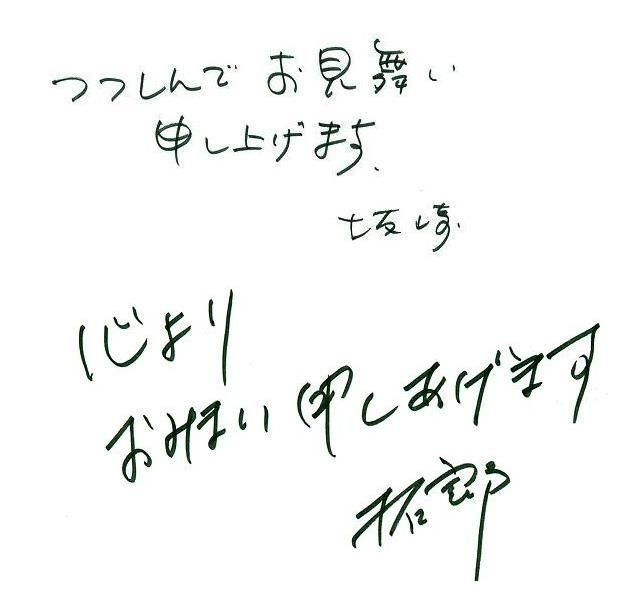 つつしんで お見舞い
申し上げます.
坂崎.
心より
おみまい申しあげます
拓郎